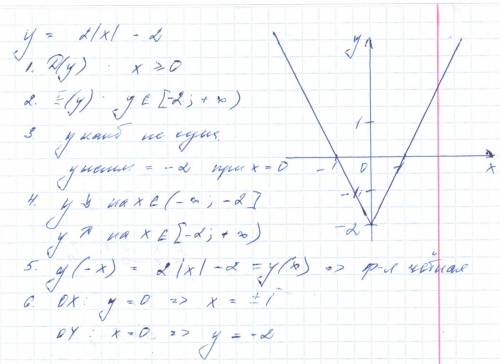 y = 2|x| - 2
1. D(y) : x ≥ 0
2. E(y) : y ∈ [-2; +∞)
3. y наиб не сущ.
y наим = -2 при x = 0
4. y ↘ на x ∈ (-∞; -2]
y ↗ на x ∈ [-2; +∞)
5. y(-x) = 2|x| - 2 = y(x) => ф-я чётная
6. OX: y = 0 => x = ±1
OY: x = 0 => y = -2
y
1
-1 0 1 x
-1
-2